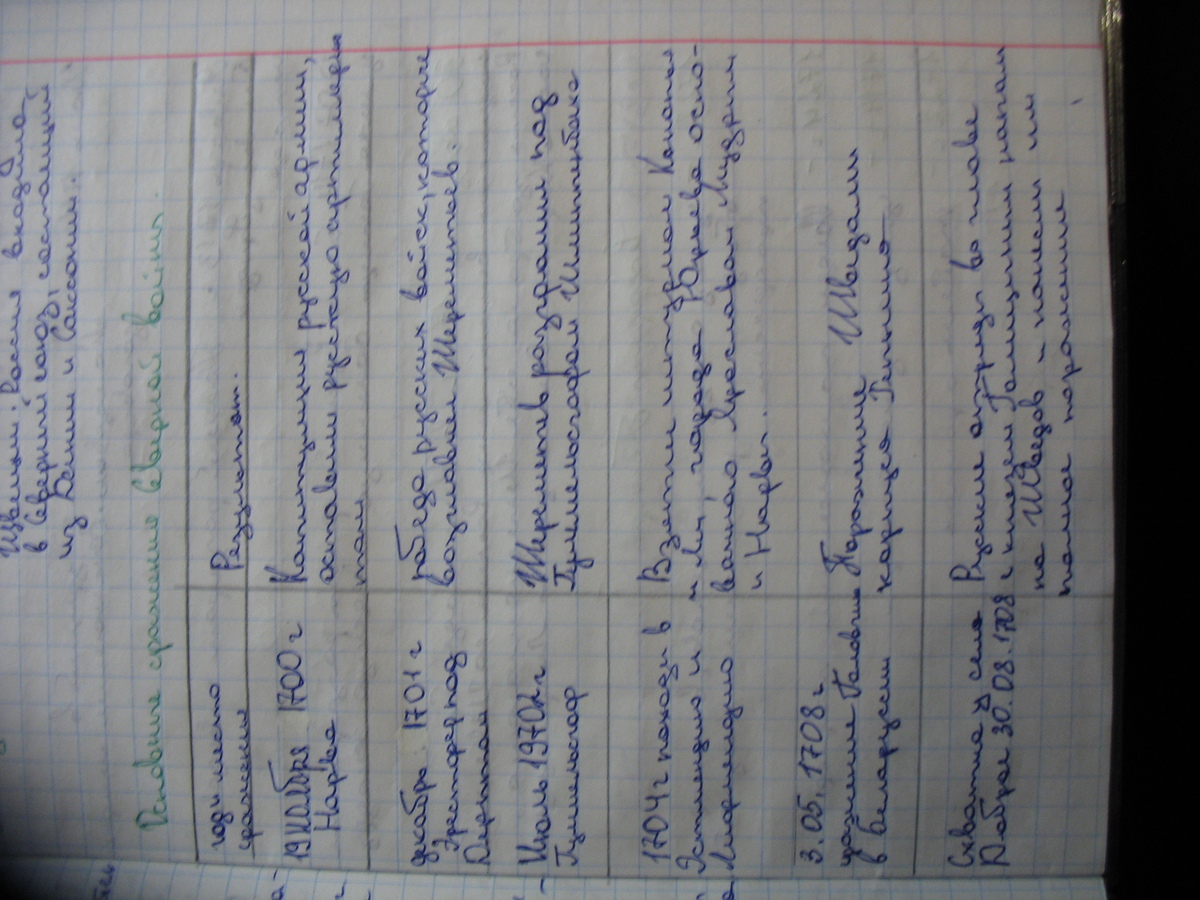 Швецией. Россия входила
в Северный союз, состоящий
из Дании и Саксонии.
Основные сражения Северной войны.
год и место
сражения
Результат.
19 Ноября 1700 г
Нарва
Капитуляция русской армии,
оставили русскую артиллерию
там
декабрь 1701 г
Эрестфер под
Дерптом
победа русских войск, которые
возглавлял Шереметьев.
Июль 1970г
Гуммельсгоф
Шереметьев раздгромил под
Гуммельсгофом Шлиппенбаха
1704 г походы в
Эстляндию и
Лифляндию
Взятие штурмом Копорья
и Ям, города Юрьева осно-
ванного Ярославом Мудрым
и Нарвы.
3.05.1708 г
сражение Головчин
в Беларусии
Поражение Шведами
корпуса Репнина
Схватка у села
Доброе 30.08.1708
Русские отряды во главе
с князем Голициным напали
на Шведов и нанесли им
полное поражение